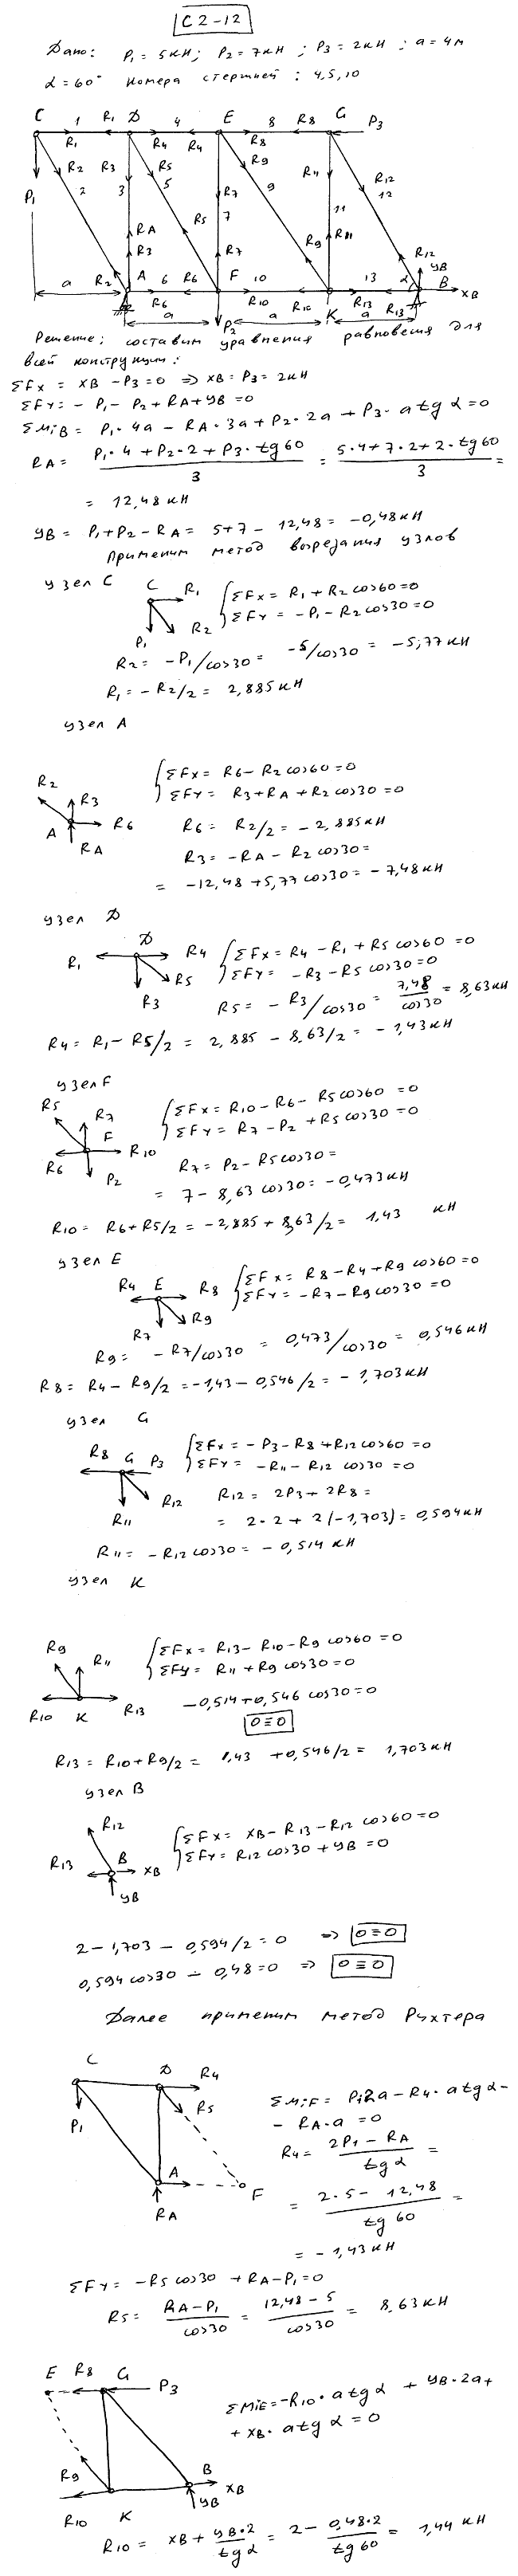 С2-12
Дано: P1 = 5кН; P2 = 7кН; P3 = 2кН; a = 4м
α = 60° Номера стержней: 4,5,10
C 1 R1 D 4 E 8 R8 G P3
R1 R4 R4 R8
R2 R3 R5 R9 R11 R12
P1 2 3 5 R7 9 12
7 11
RA R5 R9 R11
R3 R7 R12 YB
a R2 A 6 R6 F 10 13 α B XB
R6 R10 R10 K R13 R13
a P2 a a
Решение: составим уравнения равновесия для
всей конструкции:
ΣFx = XB - P3 = 0 => XB = P3 = 2кН
ΣFY = - P1 - P2 + RA + YB = 0
ΣMiB = P1·4a - RA·3a + P2·2a + P3·a tg α = 0
RA = (P1·4 + P2·2 + P3·tg60)/3 = (5·4+7·2+2·tg60)/3 =
= 12,48кН
YB = P1+P2-RA = 5+7-12,48 = -0,48кН
Применим метод вырезания узлов
узел C
C R1
P1 R2
ΣFx = R1 + R2 cos60 = 0
ΣFY = -P1 - R2 cos30 = 0
R2 = -P1/cos30 = -5/cos30 = -5,77кН
R1 = -R2/2 = 2,885кН
узел A
R2 R3
A R6
RA
ΣFx = R6 - R2 cos60 = 0
ΣFY = R3 + RA + R2 cos30 = 0
R6 = R2/2 = -2,885кН
R3 = -RA - R2 cos30 =
= -12,48 + 5,77 cos30 = -7,48кН
узел D
D
R1 R4
R5
R3
ΣFx = R4 - R1 + R5 cos60 = 0
ΣFY = -R3 - R5 cos30 = 0
R5 = -R3/cos30 = 7,48/cos30 = 8,63кН
R4 = R1 - R5/2 = 2,885 - 8,63/2 = -1,43кН
узел F
R5 R7
F
R6 R10
P2
ΣFx = R10 - R6 - R5 cos60 = 0
ΣFY = R7 - P2 + R5 cos30 = 0
R7 = P2 - R5 cos30 =
= 7 - 8,63 cos30 = -0,473кН
R10 = R6 + R5/2 = -2,885 + 8,63/2 = 1,43 кН
узел E
R4 E R8
R7 R9
ΣFx = R8 - R4 + R9 cos60 = 0
ΣFY = -R7 - R9 cos30 = 0
R9 = -R7/cos30 = 0,473/cos30 = 0,546кН
R8 = R4 - R9/2 = -1,43 - 0,546/2 = -1,703кН
узел G
R8 G P3
R12
R11
ΣFx = -P3 - R8 + R12 cos60 = 0
ΣFY = -R11 - R12 cos30 = 0
R12 = 2P3 + 2R8 =
= 2·2 + 2(-1,703) = 0,594кН
R11 = -R12 cos30 = -0,514 кН
узел K
R9 R11
R10 K R13
ΣFx = R13 - R10 - R9 cos60 = 0
ΣFY = R11 + R9 cos30 = 0
-0,514 + 0,546 cos30 = 0
0≡0
R13 = R10 + R9/2 = 1,43 + 0,546/2 = 1,703кН
узел B
R12
R13 B XB
YB
ΣFx = XB - R13 - R12 cos60 = 0
ΣFY = R12 cos30 + YB = 0
2 - 1,703 - 0,594/2 = 0 => 0≡0
0,594 cos30 - 0,48 = 0 => 0≡0
Далее применим метод Риттера
C D R4
P1 R5
A F
RA
ΣMiF = P1 2a - R4·a tg α -
- RA·a = 0
R4 = (2P1 - RA)/tg α =
= (2·5 - 12,48)/tg 60 =
= -1,43кН
ΣFY = -R5 cos30 + RA - P1 = 0
R5 = (RA-P1)/cos30 = (12,48-5)/cos30 = 8,63кН
E R8 G P3
R9 B XB
R10 K YB
ΣMiE = -R10·a tg α + YB·2a +
+ XB·a tg α = 0
R10 = XB + YB·2/tg α = 2 - 0,48·2/tg 60 = 1,44 кН